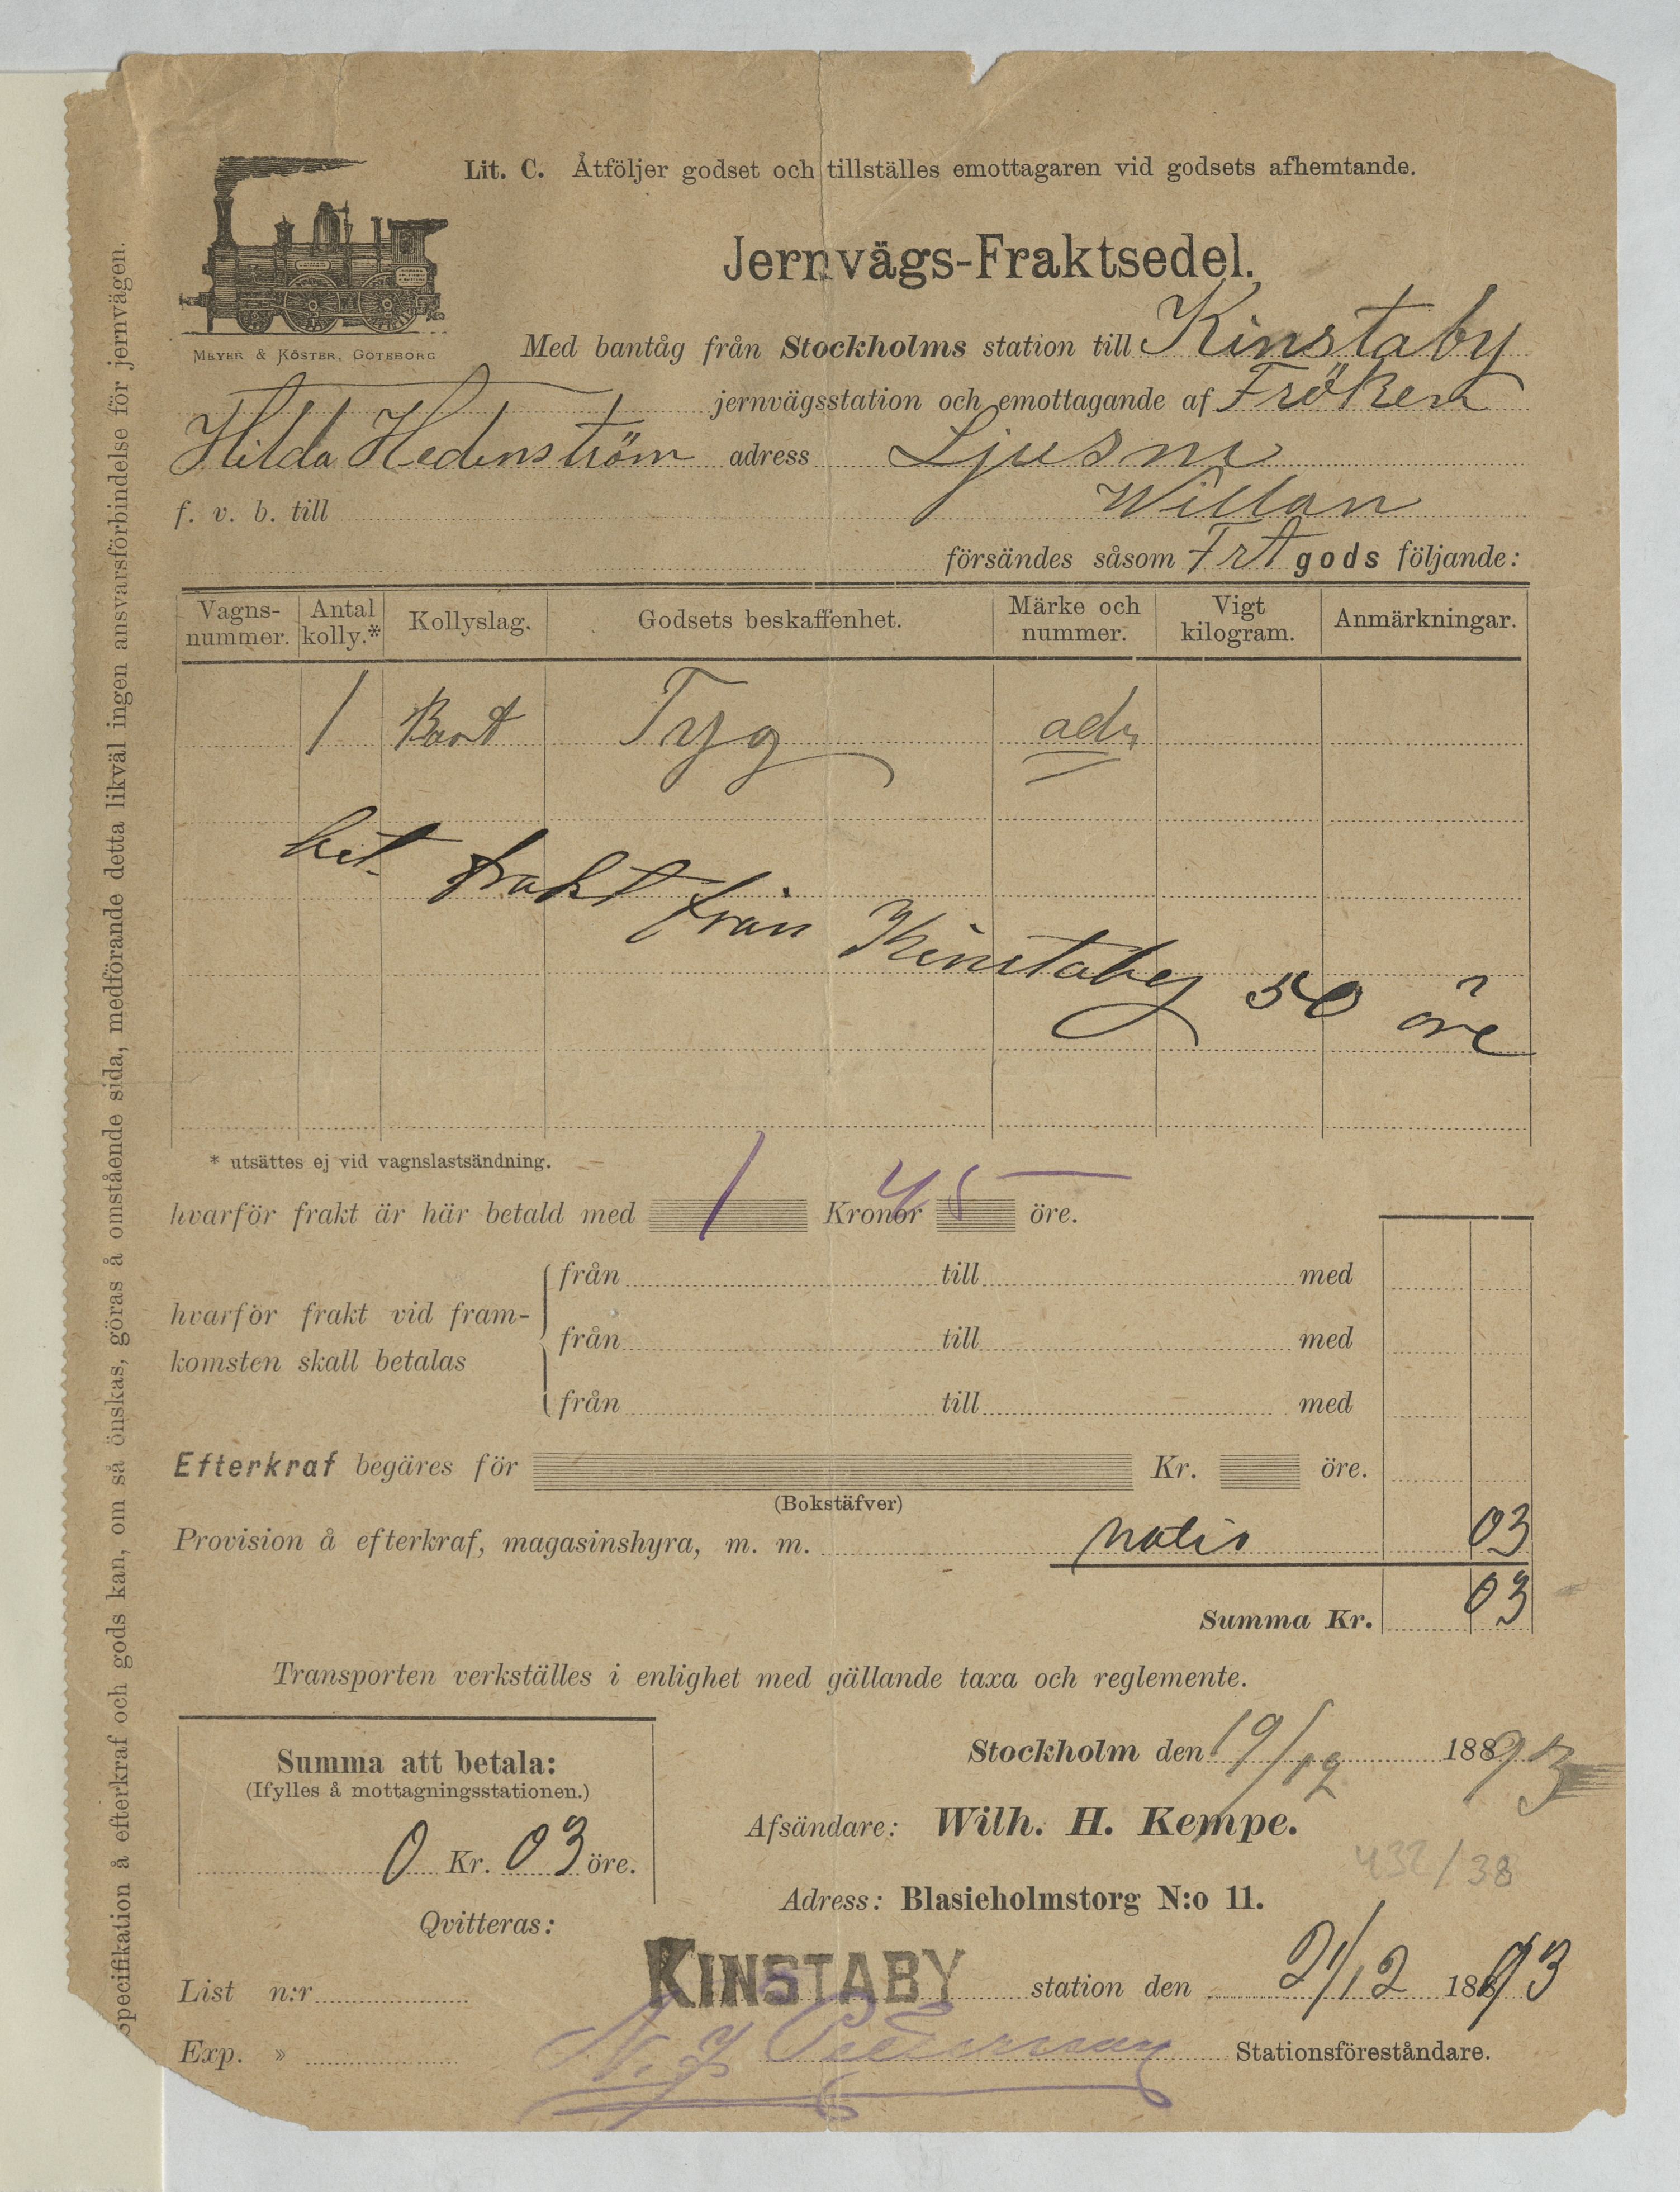 Lit. C. Åtföljer godset och tillställes emottagaren vid godsets afhemtande.
MEYER & KÖSTER, GÖTEBORG
Jernvägs-Fraktsedel.
Med bantåg från Stockholms station till Kinstaby
jernvägsstation och emottagande af Fröken
Hilda Hedenström adress Ljusne
f. v. b. till Willan
försändes såsom Frt gods följande:
Vagns-nummer. Antal kolly.* Kollyslag. Godsets beskaffenhet. Märke och nummer. Vigt kilogram. Anmärkningar.
1 Tyg adr
bet. frakt från Kinstaby 50 öre
* utsättes ej vid vagnslastsändning.
hvarför frakt är här betald med 1 Kronor 45 öre.
hvarför frakt vid fram-
komsten skall betalas
från till med
från till med
från till med
Efterkraf begäres för Kr. öre.
(Bokstäfver)
Provision å efterkraf, magasinshyra, m. m. notis 03
Summa Kr. 03
Transporten verkställes i enlighet med gällande taxa och reglemente.
Summa att betala:
(Ifylles å mottagningsstationen.)
0 Kr. 03 öre.
Qvitteras:
Stockholm den 19/12 188 93
Afsändare: Wilh. H. Kempe.
432/38
Adress: Blasieholmstorg N:o 11.
List n:r
KINSTABY station den 21/12 188 93
Exp. »
N. J. Pettersson Stationsföreståndare.
Specifikation å efterkraf och gods kan, om så önskas, göras å omstående sida, medförande detta likväl ingen ansvarsförbindelse för jernvägen.